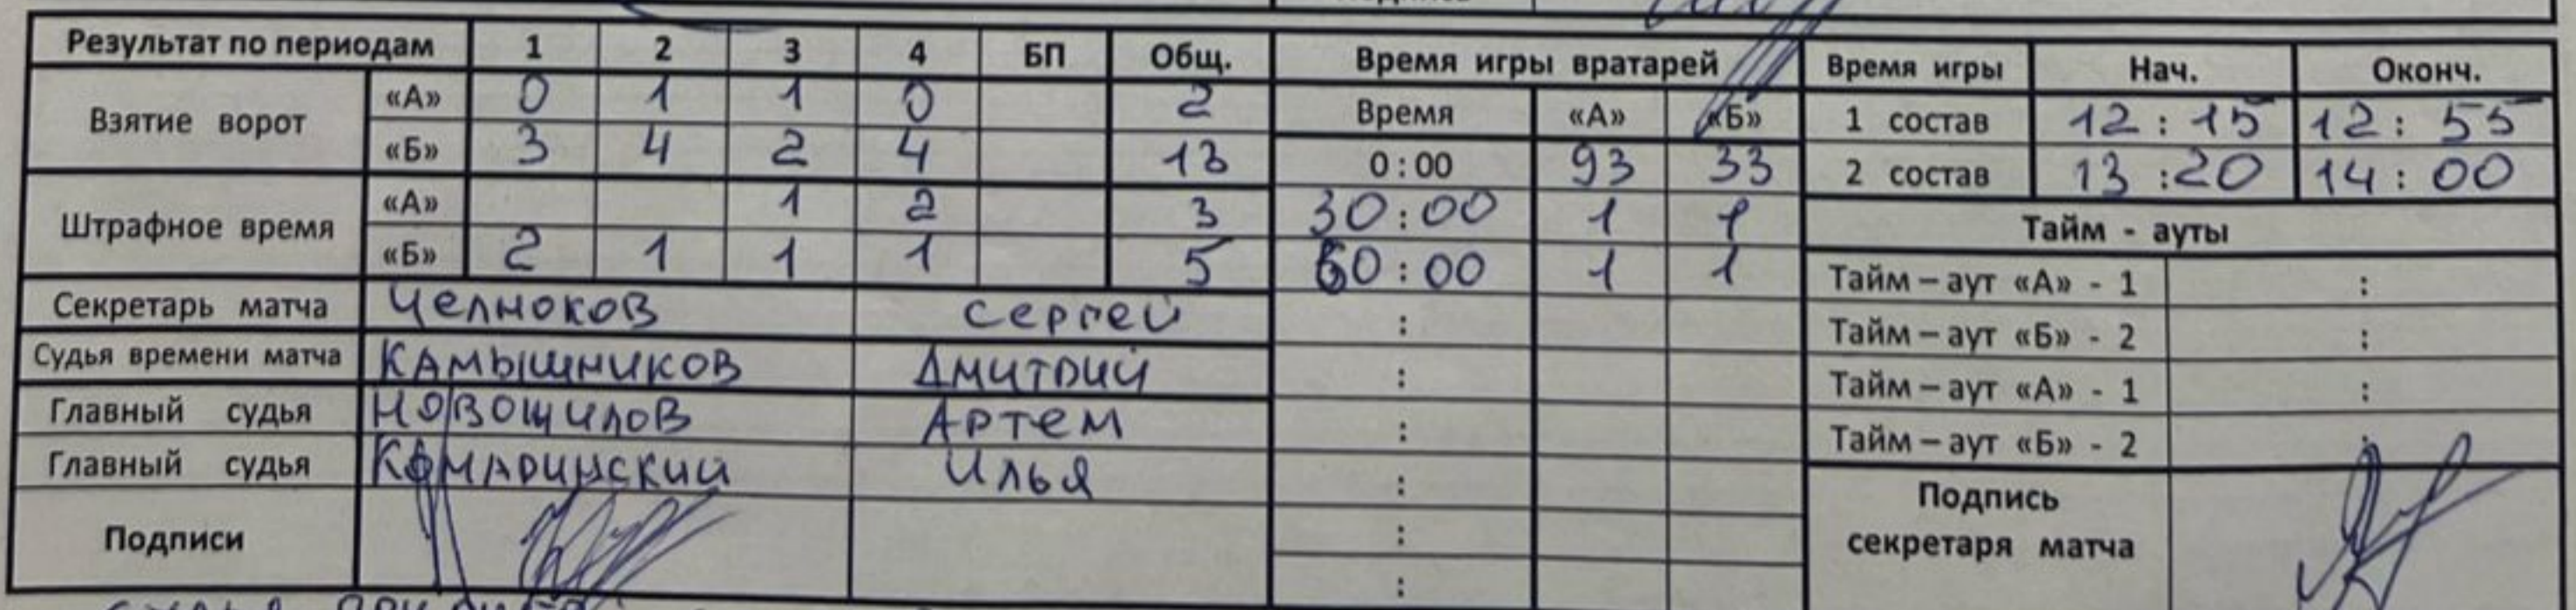 Результат по периодам 1 2 3 4 БП Общ.
Взятие ворот «А» 0 1 1 0 2
«Б» 3 4 2 4 13
Штрафное время «А» 1 2 3
«Б» 2 1 1 1 5
Секретарь матча Челноков Сергей
Судья времени матча Камышников Дмитрий
Главный судья Новощилов Артем
Главный судья Комаринский Илья
Подписи
Время игры вратарей
Время «А» «Б»
0:00 93 33
30:00 1 1
60:00 1 1
:
:
:
:
:
:
Время игры Нач. Оконч.
1 состав 12:15 12:55
2 состав 13:20 14:00
Тайм - ауты
Тайм – аут «А» - 1 :
Тайм – аут «Б» - 2 :
Тайм – аут «А» - 1 :
Тайм – аут «Б» - 2 :
Подпись
секретаря матча